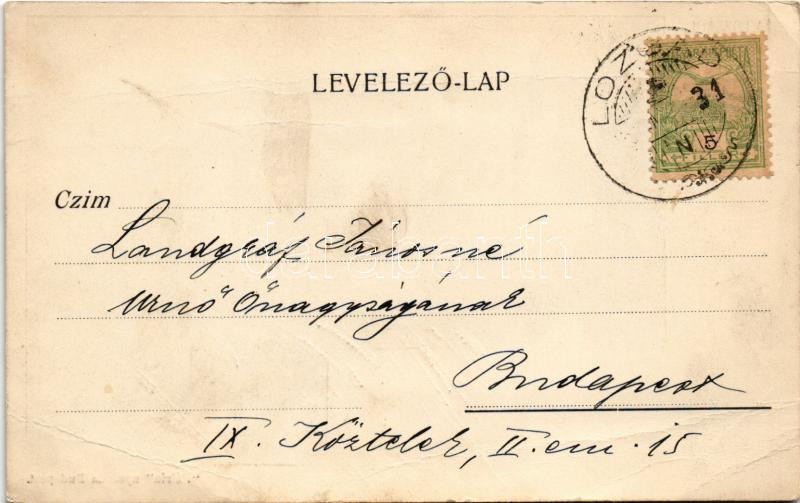 LEVELEZŐ-LAP
31
5
Czim
Landgráf Jánosné
Urnő Őnagyságának
Budapest
IX. Köztelek, II. em. 15
darabanth